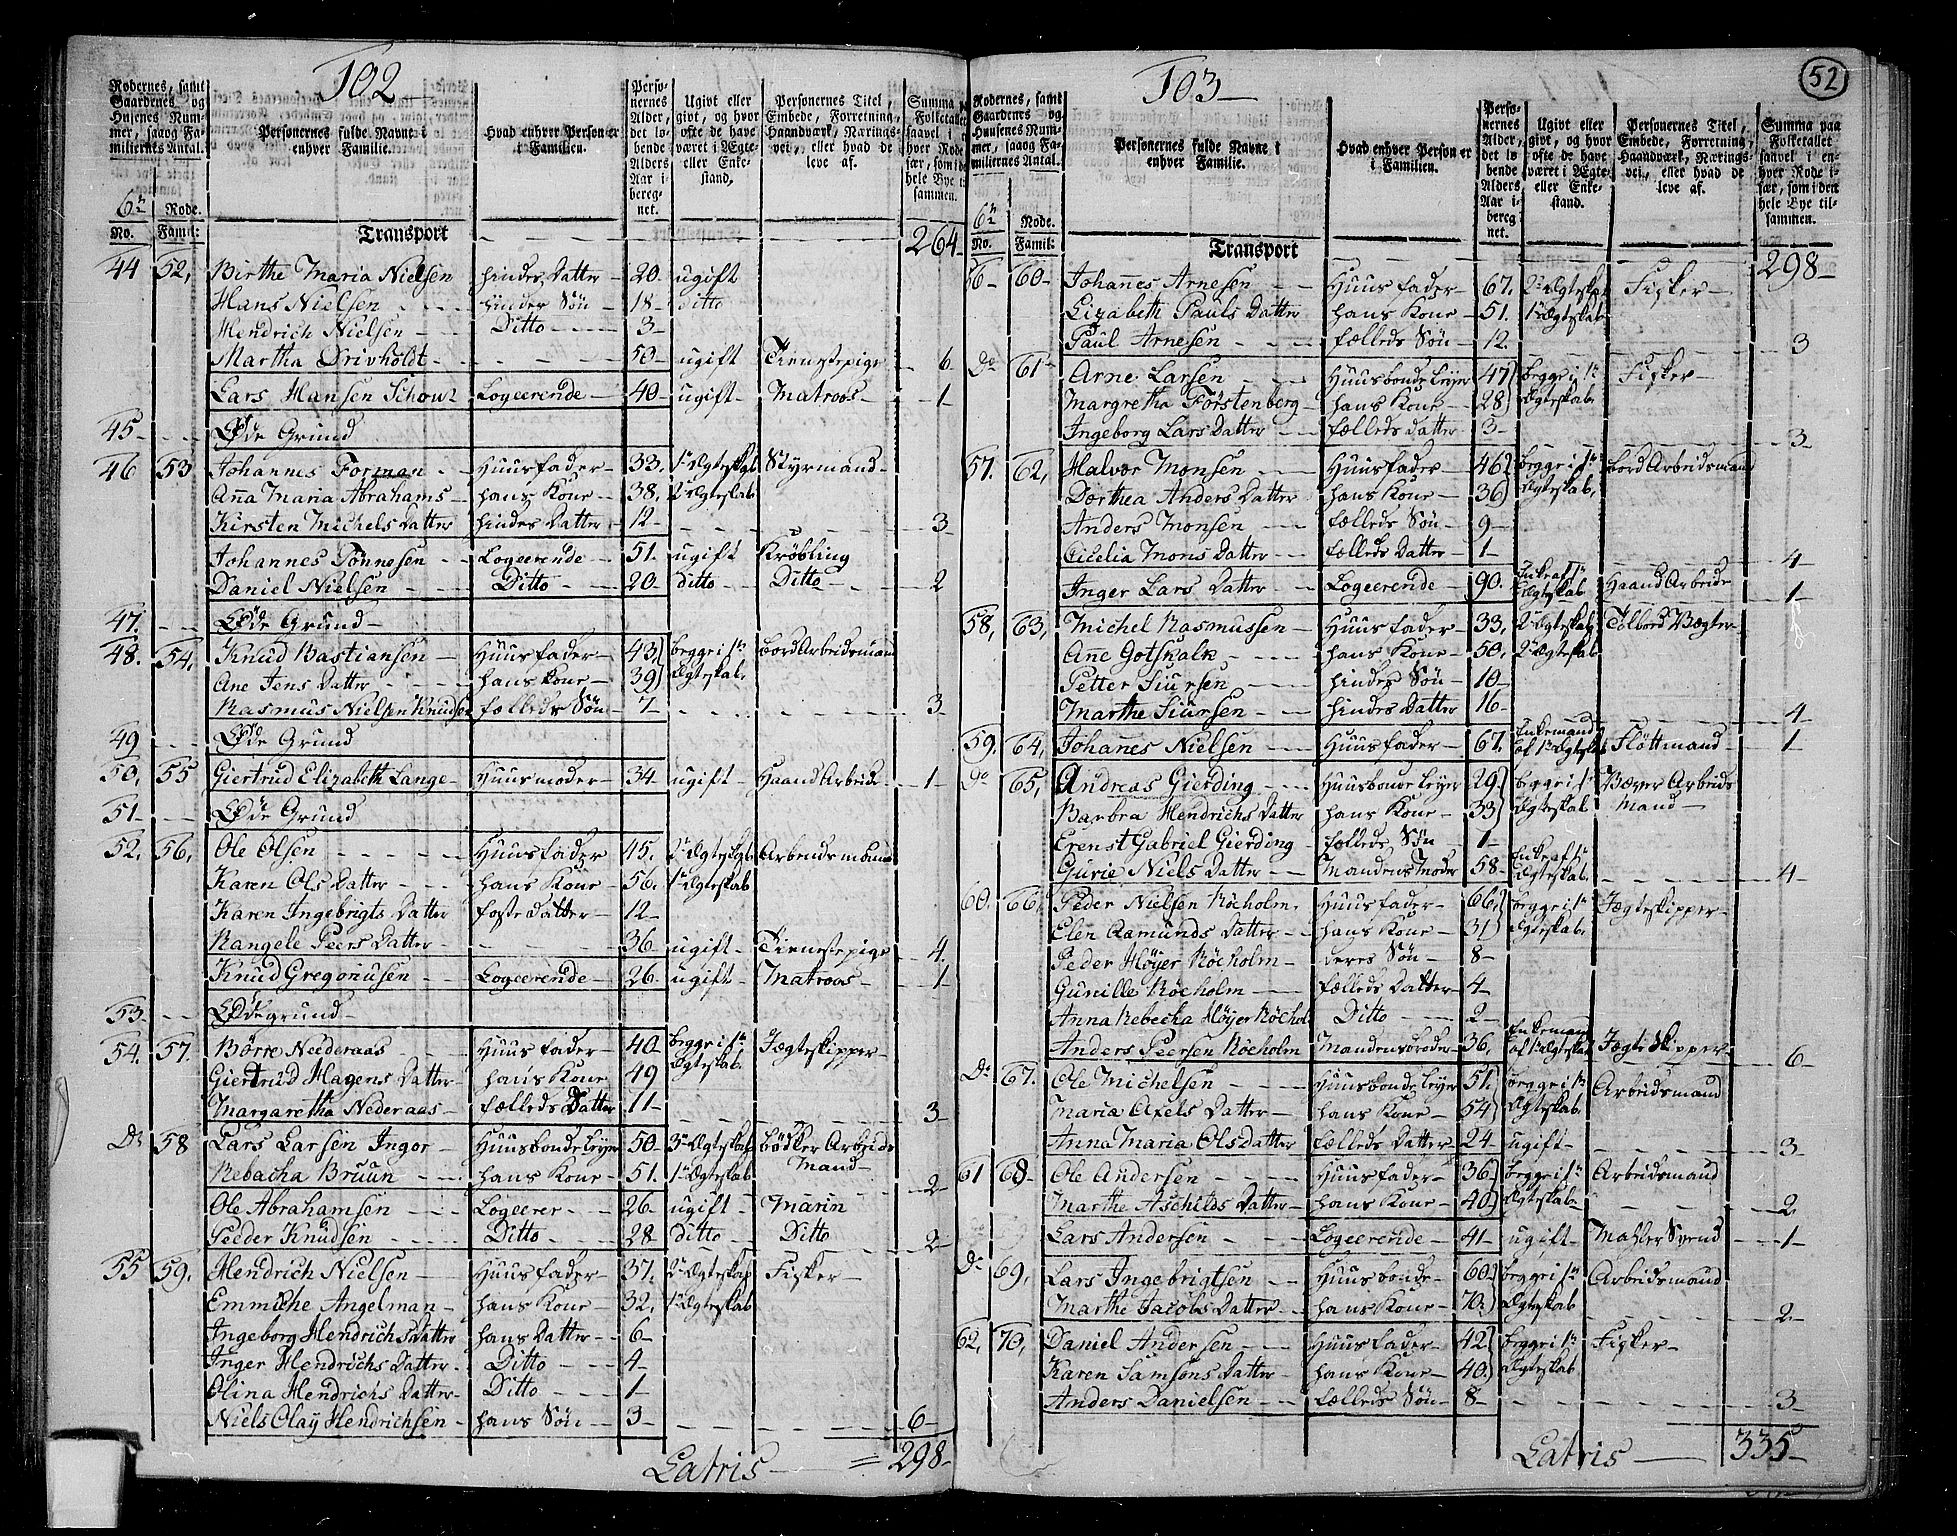 102
Rodernes, samt Gaardenes og Husenes Nummer, saaog Familiernes Antal.
Personernes fulde Navne i enhver Familie.
Hvad enhver Person er i Familien.
Personernes Alder, det løbende Alders Aar iberegnet.
Ugivt eller givt, og hvor ofte de have været i Ægte- eller Enkestand,
Personernes Titel, Embede, Forretning, Haandværk, Næringsvei, eller hvad de leve af.
Summa paa Folketallet saavel i enhver Rode især, som i den hele Bye tilsammen.
6te Rode.
No. Famil:
Transport - - - 264
44 52, Birthe Maria Nielsen hindes Datter 20 ugift
Hans Nielsen hindes Søn 18 ditto
Hendrich Nielsen Ditto 3
Martha Drivholdt 50 ugift Tienestepige 6
Lars Hansen Schou Logeerende 40 ugift Matroos 1
45 Øde Grund
46 53 Johannes Forman Huusfader 33 1te Ægteskab Styrmand
Anna Maria Abrahams hans Kone 38 2det Ægteskab
Kirsten Michels Datter hindes Datter 12 3
Johannes Tønnesen Logeerende 51 ugift Krøbling
Daniel Nielsen Ditto 20 ditto Ditto 2
47 Øde Grund
48. 54, Knud Bastiansen Huusfader 43 begge i 1te Bord Arbeidsmand
Ane Jens Datter hans Kone 39 Ægteskab
Rasmus Nielsen Knudsen fælleds Søn 7 3
49 Øde Grund
50, 55 Giertrud Elizabeth Lange Huusmoder 34 ugift Haand Arbeide 1
51 Øde Grund
52, 56, Ole Olsen Huusfader 45. 2det Ægteskab Arbeidsmand
Karen Ols Datter hans Kone 56. 1te Ægteskab
Karen Ingebrigts Datter foste Datter 12
Rangele Peers Datter 36 ugift Tienestepige 4
Knud Gregoriusen Logeerende 26 ugift Matroos 1
53 Øde grund
54. 57. Børre Nederaas Huusfader 40 begge i 1te Jægteskipper
Giertrud Hagens Datter hans Kone 49 Ægteskab
Margaretha Nederaas fælleds Datter 11 3
Do 58 Lars Larsen Ingor Huusbonde Leyer 50 3de Ægteskab Bødker Arbeids
Rebacha Bruun hans Kone 51. 1te Ægteskab Mand 2
Ole Abrahamsen Logeerer 26 ugift Marin
Peder Knudsen Ditto 28 ditto Ditto 2
55 59. Hendrich Nielsen Huusfader 37. 2det Ægteskab Fisker
Emmiche Angelman hans Kone 32, 1te Ægteskab
Ingeborg Hendrichs Datter hans Datter 6
Inger Hendrichs Datter Ditto 4
Olina Hendrichs Datter Ditto 1
Niels Olay Hendrichsen hans Søn 3 6
Latris = 298
103
52
Rodernes, samt Gaardenes og Husenes Nummer, saaog Familiernes Antal.
Personernes fulde Navne i enhver Familie.
Hvad enhver Person er i Familien.
Personernes Alder, det løbende Alders Aar iberegnet.
Ugivt eller givt, og hvor ofte de have været i Ægte- eller Enkestand.
Personernes Titel, Embede, Forretning, Haandværk, Næringsvei, eller hvad de leve af.
Summa paa Folketallet saavel i enhver Rode især, som i den hele Bye tilsammen.
6te Rode.
No. Famil:
Transport 298
56 60 Johannes Arnesen Huusfader 67. 2det Ægteskab Fisker
Lizabeth Pauls Datter hans Kone 51. 1te Ægteskab
Paul Arnesen fælleds Søn 12. 3
Do 61 Arne Larsen Huusbonde Leyer 47 begge i 1te Fisker
Margretha Förstenberg hans Kone 28 Ægteskab
Ingeborg Lars Datter fælleds Datter 3 3
57. 62, Halvor Monsen Huusfader 46 begge i 1te Bord Arbeidsmand
Dorthea Anders Datter hans Kone 36 Ægteskab,
Anders Monsen fælleds Søn 9
Cicelia Mons Datter fælleds Datter 1 4
Inger Lars Datter Logeerende 90. Enke af 1te Ægteskab Haand Arbeide 1
58, 63, Michel Rasmussen Huusfader 33, 2det Ægteskab Tolbod Vægter
Ane Gotskalk hans Kone 50, 2det Ægteskab
Petter Siursen hindes Søn 10
Marthe Siursen hindes Datter 16 4
59. 64, Johannes Nielsen Huusfader 67. Enkemand af 1te Ægteskab Fløttmand 1
Do 65, Andreas Gierding Huusbonde Leyer 29 begge i 1te Væver Arbeids
Barbra Hendrichs Datter hans Kone 33 Ægteskab Mand
Erenst Gabriel Gierding fælleds Søn 1
Gurie Niels Datter Mandens Moder 58 Enke af 1te Ægteskab. 4
60. 66, Peder Nielsen Röcholm Huusfader 66 begge i 1te Jægteskipper
Elen Ramunds Datter hans Kone 31 Ægteskab
Peder Høyer Röcholm deres Søn 8
Gunille Röcholm fælleds Datter 4
Anna Rebecka Høyer Röcholm Ditto 2
Anders Peersen Röcholm Mandens broder 36, Enkemand af 1te Ægteskab Jægteskipper 6
Do 67. Ole Michelsen Huusbonde Leyer 51, begge i 1te Arbeidsmand
Maria Axels Datter hans Kone 54 Ægteskab
Anna Maria Olsdatter fælleds Datter 24 ugift 3
61 68 Ole Andersen Huusfader 36 begge i 1te Arbeidsmand
Marthe Aschilds Datter hans Kone 40 Ægteskab 2
Lars Andersen Logeerende 41 ugift Mahler Svend 1
Do 69, Lars Ingebrigtsen Huusbonde 60 begge i 1te Arbeidsmand
Marthe Jacobs Datter hans Kone 70 Ægteskab 2
62, 70, Daniel Andersen Huusfader 42 begge i 1te Fisker
Karen Samsons Datter hans Kone 40 Ægteskab
Anders Danielsen fælleds Søn 8 3
Latris 335